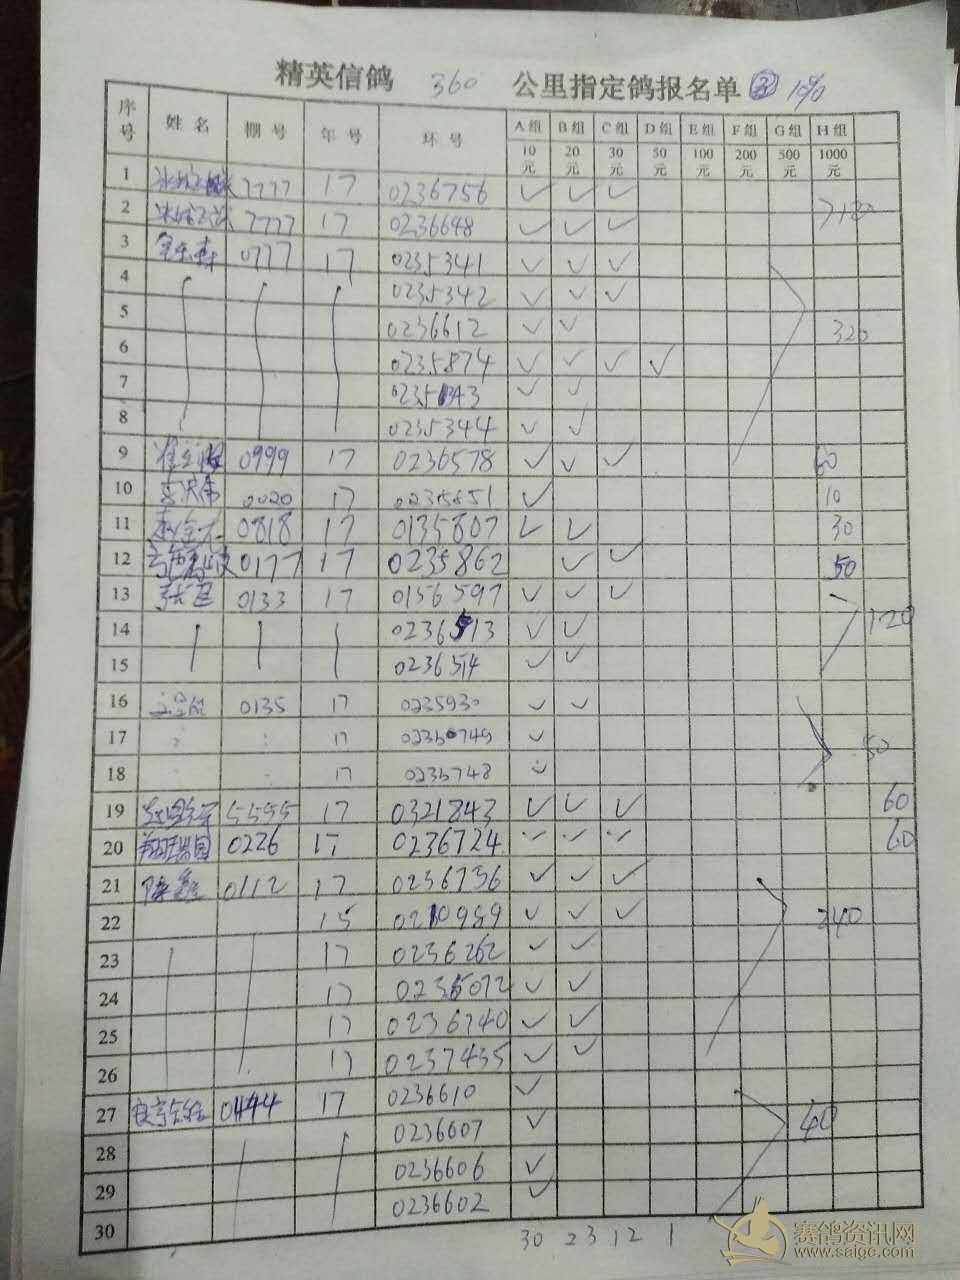 精英信鸽 360 公里指定鸽报名单 ③ 10%
序号 姓名 棚号 年号 环号 A组 B组 C组 D组 E组 F组 G组 H组
10元 20元 30元 50元 100元 200元 500元 1000元
1 7777 17 0236756 ✓ ✓ ✓
2 7777 17 0236648 ✓ ✓ ✓
3 0777 17 0235341 ✓ ✓ ✓
4 0235342 ✓ ✓ ✓
5 0236612 ✓ ✓ 320
6 0235874 ✓ ✓ ✓ ✓
7 0235343 ✓ ✓
8 0235344 ✓ ✓
9 0999 17 0236578 ✓ ✓ ✓ 60
10 0020 17 ✓ 10
11 0818 17 0135807 ✓ ✓ 30
12 0177 17 0235862 ✓ ✓ 50
13 0133 17 0156597 ✓ ✓ ✓
14 0236513 ✓ ✓ 120
15 0236514 ✓ ✓
16 0135 17 0235930 ✓ ✓
17 17 ✓ 50
18 17 0236748 ✓
19 5555 17 0321843 ✓ ✓ ✓ 60
20 0226 17 0236724 ✓ ✓ ✓ 60
21 陈鑫 0112 17 0236736 ✓ ✓ ✓
22 15 0210989 ✓ ✓ ✓ 240
23 17 0236262 ✓ ✓
24 17 ✓ ✓
25 17 0236740 ✓ ✓
26 17 0237435 ✓ ✓
27 0444 17 0236610 ✓
28 0236607 ✓ 40
29 0236606 ✓
30 0236602 ✓
30 23 12 1
赛鸽资讯网
www.saigc.com